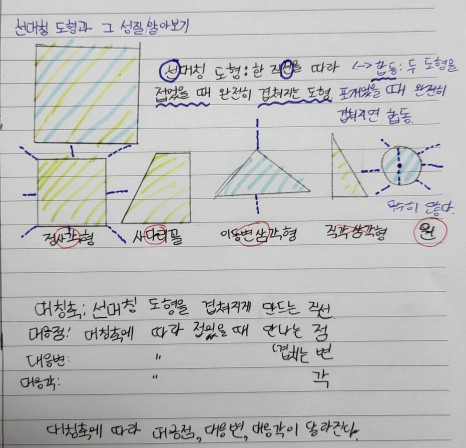 선대칭 도형과 그 성질 알아보기
선대칭 도형: 한 직선을 따라 ↔합동: 두 도형을
접었을 때 완전히 겹쳐지는 도형 포개었을 때 완전히
겹쳐지면 합동
무수히 많다.
정사각형 사다리꼴 이등변삼각형 직각삼각형 원
대칭축: 선대칭 도형을 겹쳐지게 만드는 직선
대응점: 대칭축에 따라 접었을 때 만나는 점
대응변: " 겹치는 변
대응각: " 각
대칭축에 따라 대응점, 대응변, 대응각이 달라진다.